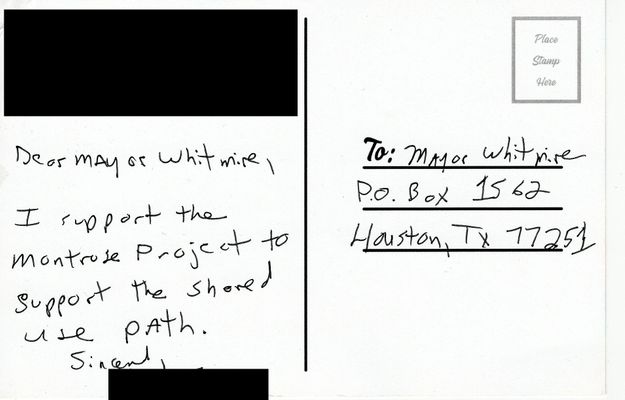 Place
Stamp
Here
Dear Mayor Whitmire,
I support the
Montrose Project to
support the shared
use path.
To: Mayor Whitmire
P.O. Box 1562
Houston, Tx 77251